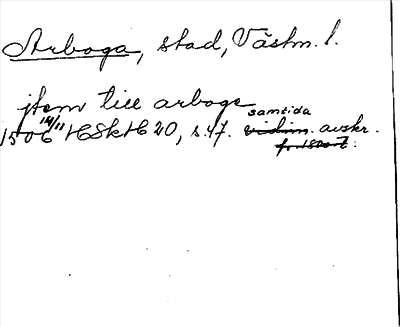 Arboga, stad, Västm. l.
jtem tiee arboge
1506 14/11 HSkH 20, s. 47. samtida vidim. avskr.
fr. 1500-t.